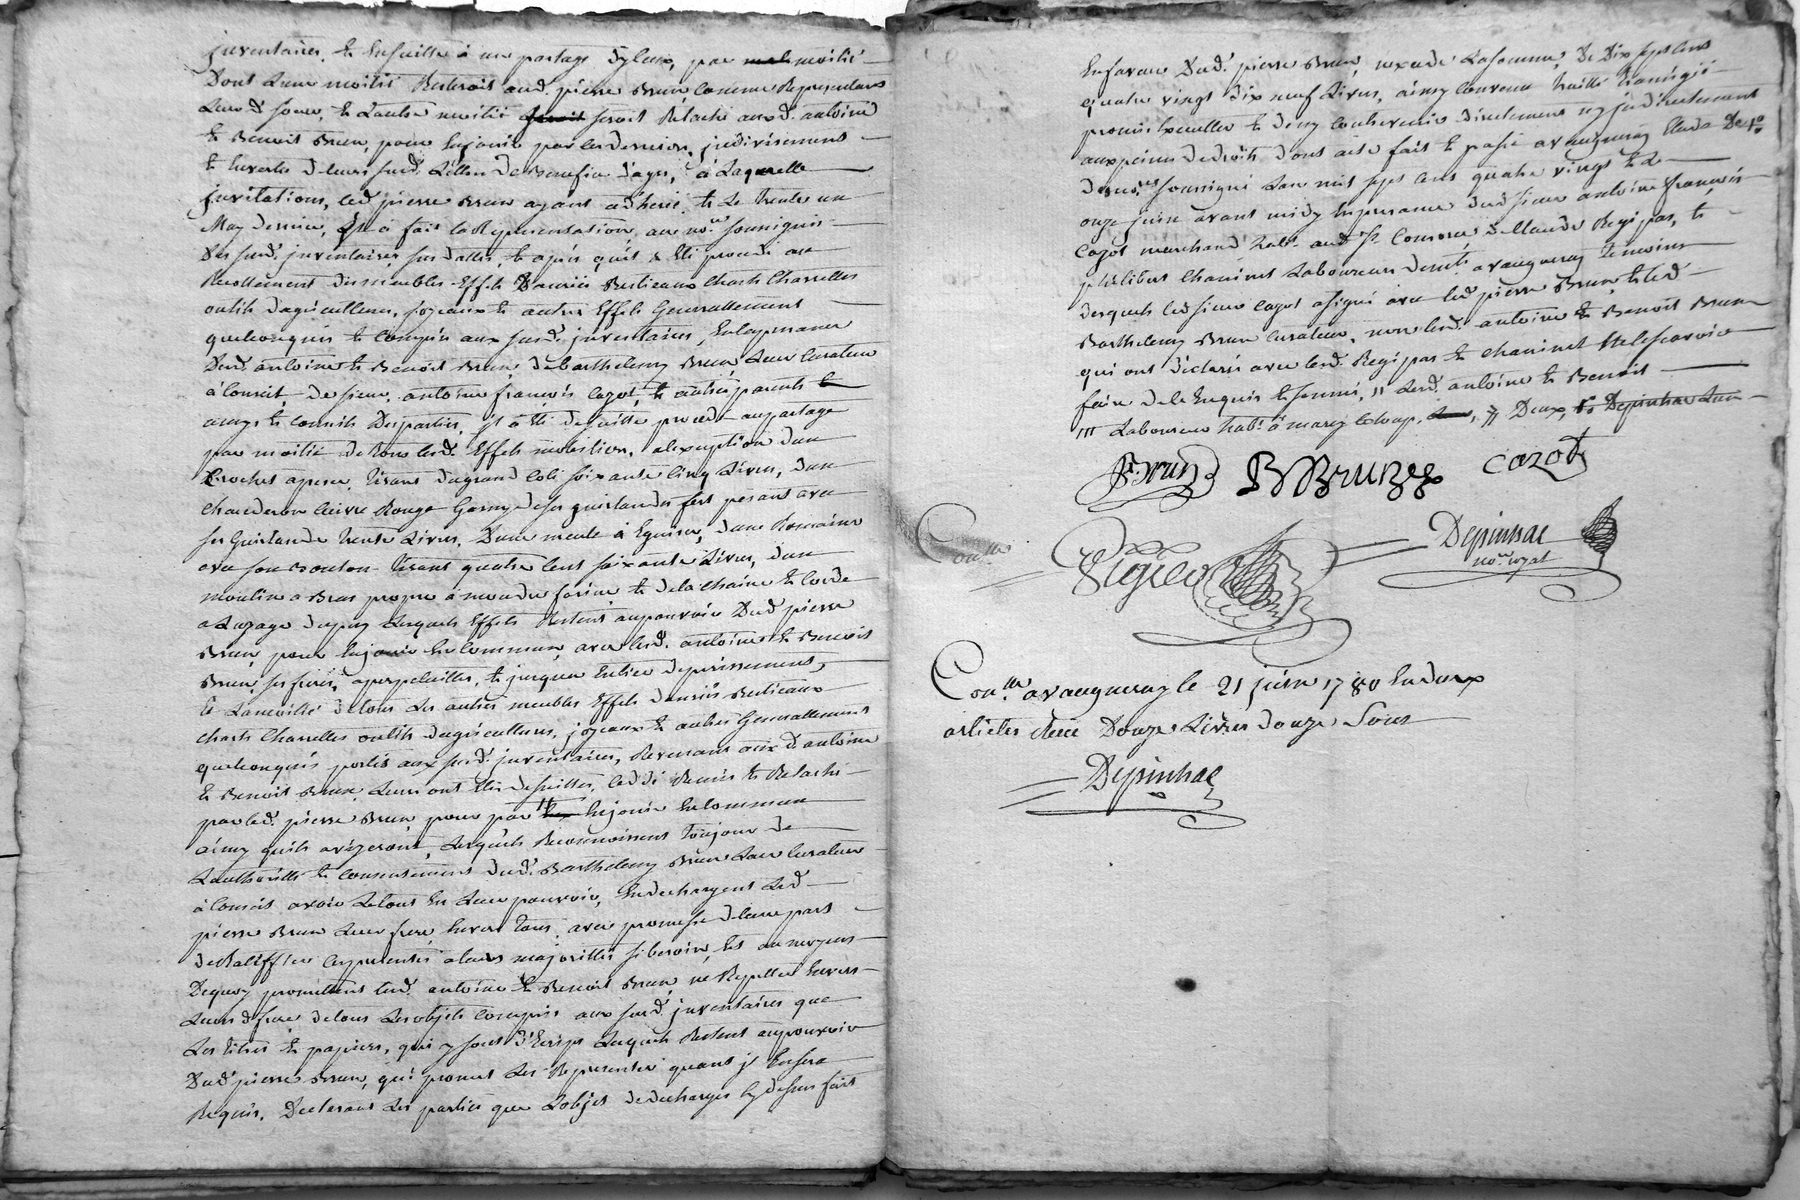 jnventaires, et Ensuitte à un partage d'yceux, par moitié
Dont Lune moitié Resteroit aud. pierre Brun Comme Representant
Leurd. soeur, et Lautre moitié seroit Relaché auxd. antoine
et Benoit Brun, pour En jouir par Ces derniers, jndivisement
Et En vertu de leurs susd. Lettres de Benefice d'ages, à Laquelle
jnvitations, led. pierre Brun ayant adheré, et Le trente un
May dernier, Il a fait la Representation au no.re soussigné
Des susd. jnventaires sus dattés, et après qu'il a Eté procedé au
Recollement des meubles Effets Danrées Bestieaux Chards Charrettes
outils d'agriculture, joyeaux et autres Effets Generallement
quelconques et Compris aux susd. jnventaires, En la presence
Desd. antoine et Benoit Brun, de Barthelemy Brun Leur Curateur
à Conseil, de sieur antoine francois Cazot, et autres parents et
amys et Conseils Des parties, Il a Eté de suitte procedé au partage
par moitié de tous lesd. Effets mobiliers, a lexception d'un
Crochet a peser, tirant du grand Coté soixante Cinq Livres, d'un
Chauderon Cuivre Rouge Garny de ses guirlandes fert pesant avec
ses Guirlande trente Livres, D'une meule à Eguiser, d'une Romaine
avec son Bouton tirant quatre Cent soixante Livres, d'un
moulin a Bras propre à moudre farine et de la Chaine et Corde
a Lusage du puy Lesquels Effets Restent au pouvoir Dud. pierre
Brun, pour En jouir En Commun avec lesd. antoine et Benoit
Brun, ses freres, a perpetuittés, et jusqu'au Entier deperissement,
Et La moitié de tous Les autres meubles Effets danrées Bestieaux
Chards Charrettes outils d'agriculture, joyeaux et autres Generallement
quelconques portés aux susd. jnventaires, Revenant aux d. antoine
et Benoit Brun, Leurs ont Eté de suittes, Cedés Remis et Relaché
par led. pierre Brun, pour par En jouir En Commun
ainsy quils aviseront, Lesquels Reconnoissent toujour de
Lauthorité et Consentement dud. Barthelemy Brun Leur Curateur
à Conseil avoir Le tout En Leur pouvoir, En dechargent Led.
pierre Brun Leur frere Envers tous, avec promesse de leur part
de Ratiffier Ces presentes a leurs majorittés si besoin, Est au moyen
Dequoy promettent lesd. antoine et Benoit Brun, ne Repetter Envers
Leurd. frere de tous Les objets Compris aux susd. jnventaires que
Les titres et papiers, qui y sont d'Ecrips Lesquels Restent au pouvoir
Dud. pierre Brun, qui promet Les Representer quant jl En sera
Requis, Declarant Les parties que Lobjet de decharges Cy dessus fait
En faveur Dud. pierre Brun, n'excede La somme, De Dix sept Cent
quatre vingt dix neuf Livres, ainsy Convenu traitté transigé
promis Executter et de ny Contrevenir directement ny jndirectement
aux peines de droits dont acte fait et passé a vaugneray Etude De
des no.res soussigné Lan mil sept Cent quatre vingt et Le
onze juin avant midy En presence dud. sieur antoine francois
Cazot marchand hab. aud. Claude Regipas, et
philibert Chavinet Laboureur dem.t a vaugneray temoins
desquels led. sieur Cazot a signé avec led. pierre Brun, et led.
Barthelemy Brun Curateur, non lesd. antoine et Benoit Brun
qui ont declaré avec lesd. Regipas et Chavinet ne le scavoir
faire de ce Enquis et sommé, // Lesd. antoine et Benoit
/// Laboureur hab. à marcy Leloup, Deux, Depinhac
P. Brun B Brun Cazot
Con.lle Vigneo Depinhac
no.re royal
Con.lle a vaugneray le 21 juin 1780 En deux
articles Reçu Douze Livres douze Sous
Depinhac